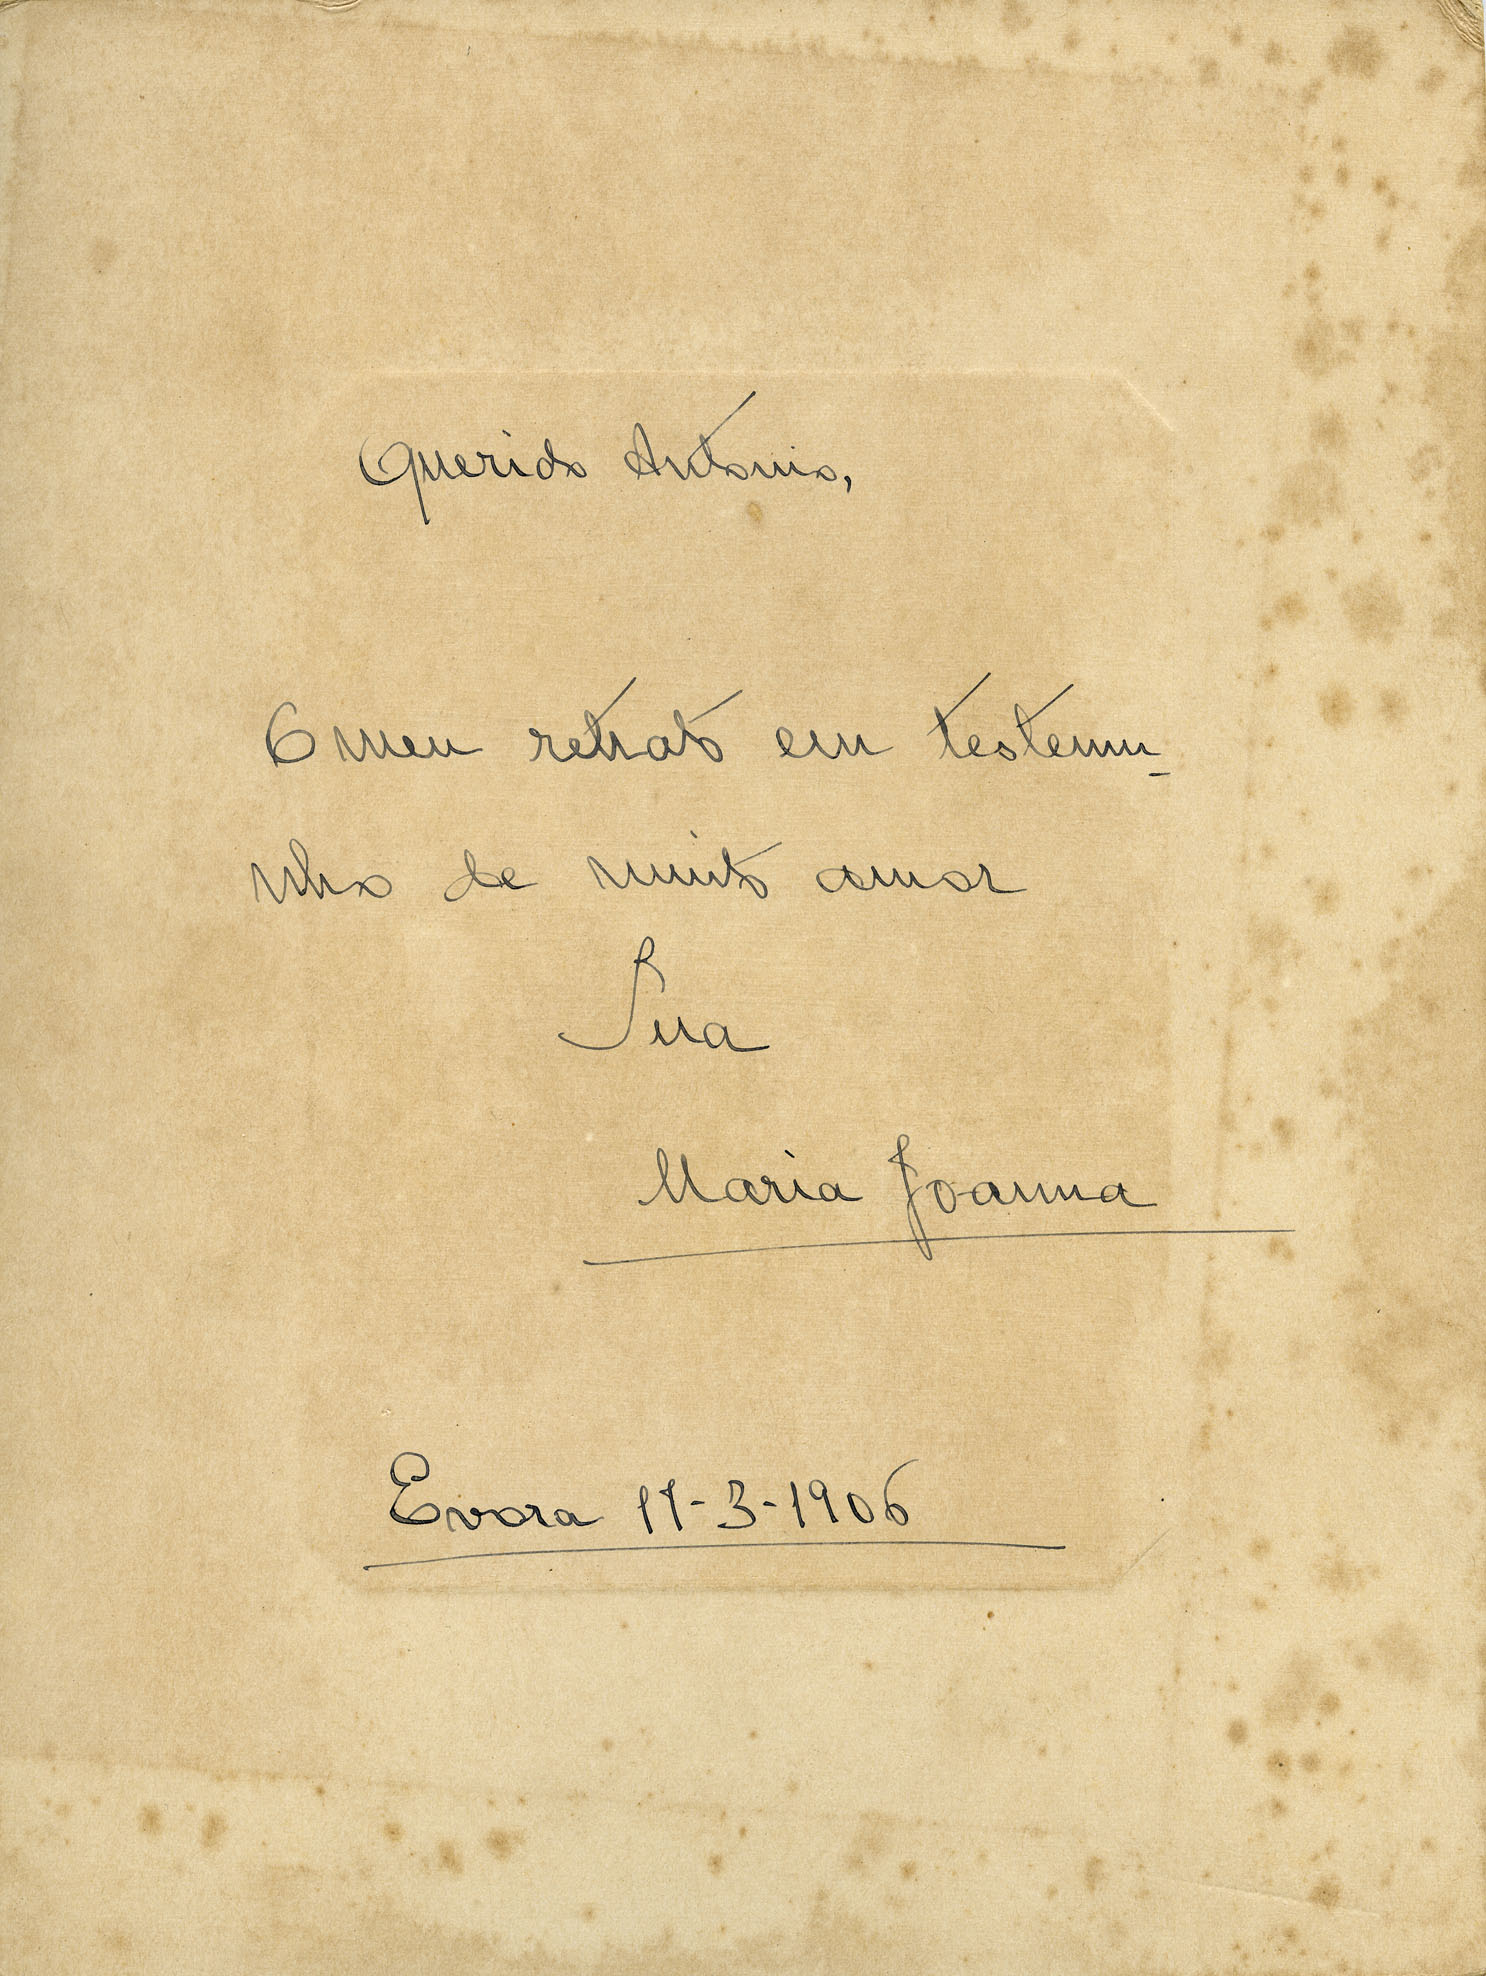 Querido Antonio,
O meu retrato em testemu-
nho de muito amor
Sua
Maria Joanna
Evora 11-3-1906